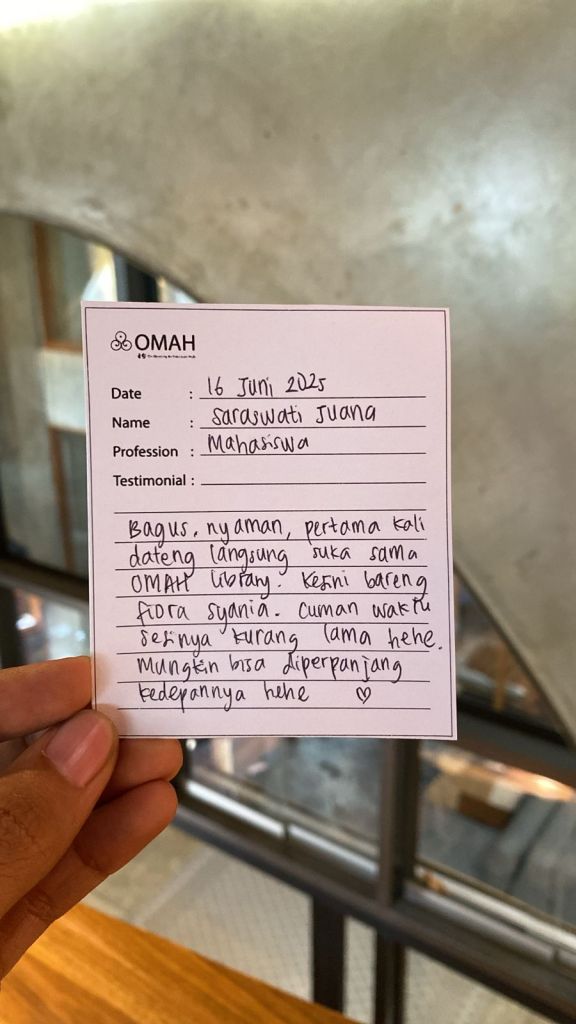 OMAH
Date : 16 Juni 2025
Name : Saraswati Juana
Profession : Mahasiswa
Testimonial :
Bagus. nyaman, pertama kali
dateng langsung suka sama
OMAH Library. Kesini bareng
fiora syania. Cuman waktu
sesinya kurang lama hehe.
Mungkin bisa diperpanjang
kedepannya hehe ♡